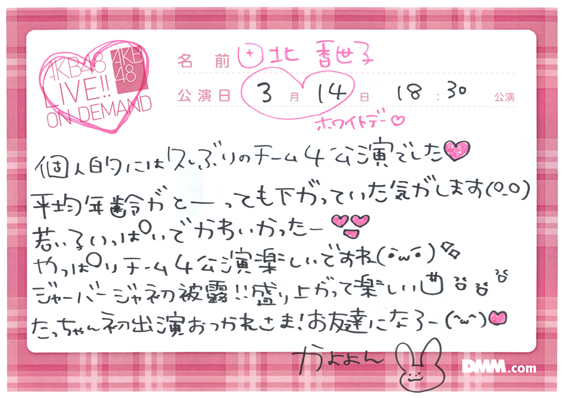 AKB48
LIVE!!
ON DEMAND
AKB
48
名前 田北香世子
公演日 3月14日 18:30公演
ホワイトデー♡
個人的には久しぶりのチーム4公演でした♥
平均年齢がとーっても下がっていた気がします(0_0)
若い子いっぱいでかわいかったー
やっぱりチーム4公演楽しいですね(・ω・)
ジャーバージャ初披露!!盛り上がって楽しい
たっちゃん初出演おつかれさま!お友達になろー(^ω^)♥
かよよん
DMM.com